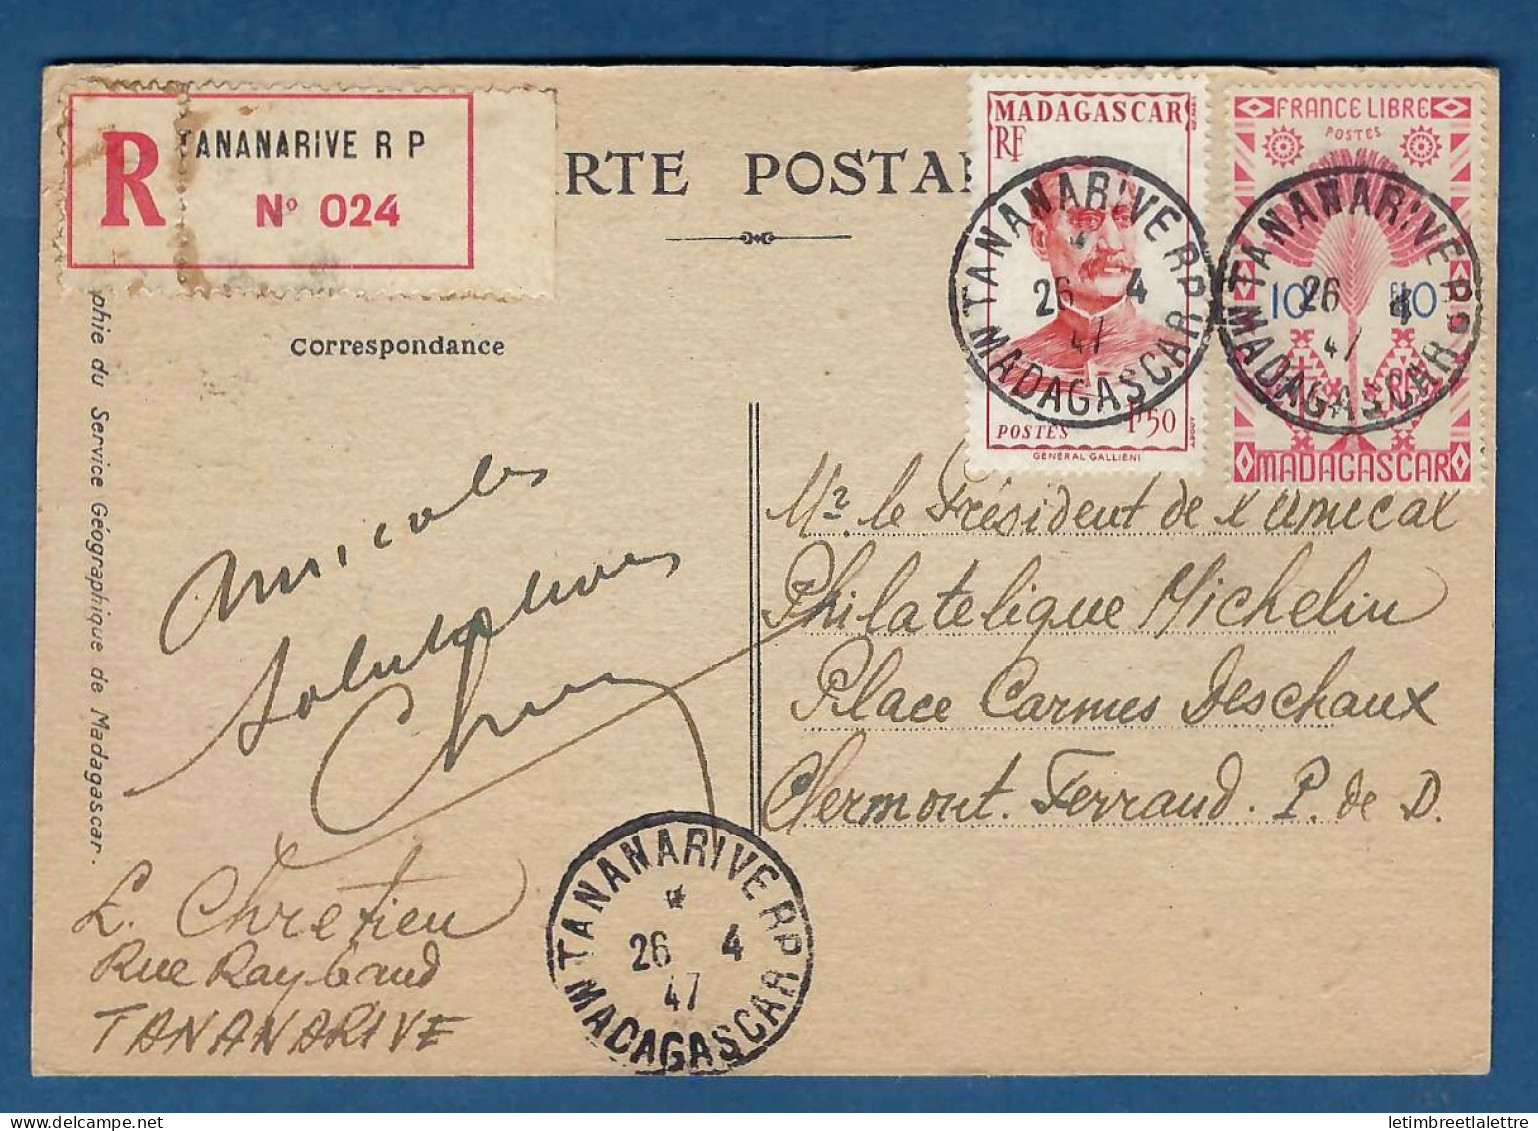 R
TANANARIVE R P
N° 024
RTE POSTA
Correspondance
phie du Service Géographique de Madagascar.
MADAGASCAR
RF
POSTES 1F50
GÉNÉRAL GALLIENI
FRANCE LIBRE
POSTES
10F
MADAGASCAR
TANANARIVE RP
26 4
47
MADAGASCAR
TANANARIVE RP
26 4
47
MADAGASCAR
Amicales
Salutations
Mr le Président de l'Amicale
Philatelique Michelin
Place Carmes Deschaux
Clermont. Ferrand. P. de D.
L. Chretien
Rue Raybaud
TANANARIVE
TANANARIVE RP
26 4
47
MADAGASCAR
letimbreetlalettre.com